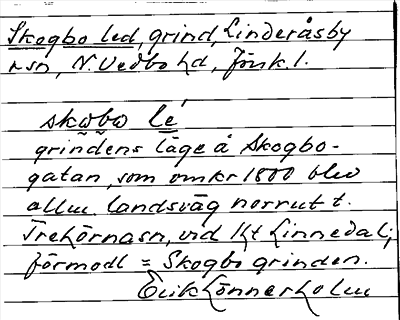 Skogbo led, grind, Linderåsby
rsn, N. Vedbo hd, Jönk. l.
skωbω lé
grindens läge å Skogbo-
gatan, som omkr 1800 blev
allm. landsväg norrut t.
Trehörnasn, vid Kt Linnedal;
förmodl = Skogbo grinden.
Erik Lönnerholm